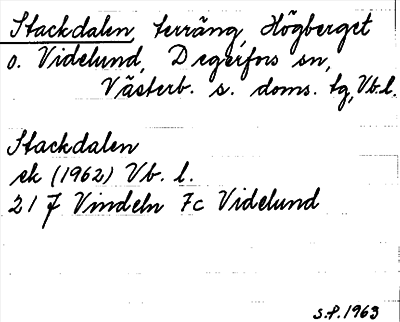 Stackdalen, terräng, Högberget
o. Videlund, Degerfors sn,
Västerb. s. doms. tg, Vb.l.
Stackdalen
ek (1962) Vb. l.
21 J Vindeln 7c Videlund
s.f. 1963